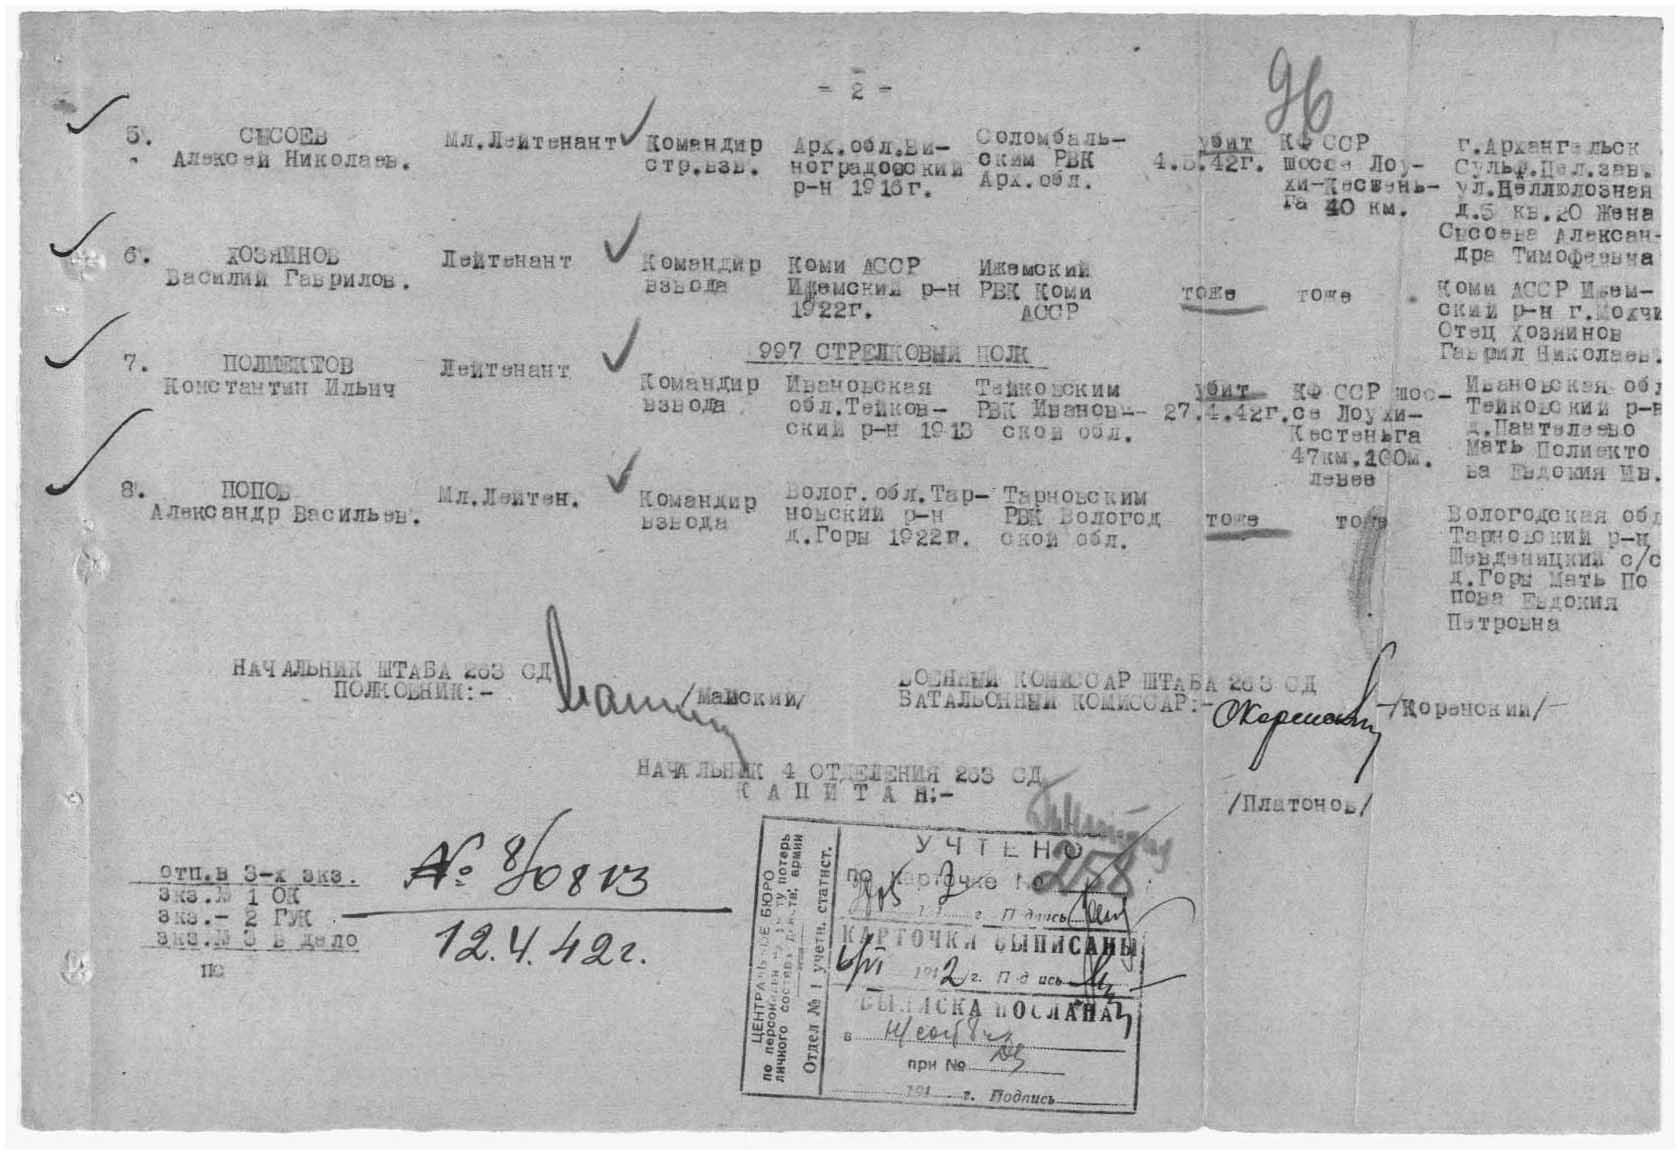 - 2 -
96
5. СЫСОЕВ
Алексей Николаев.
Мл.Лейтенант
Командир
стр.взв.
Арх.обл.Ви-
ноградовский
р-н 1916г.
Соломбаль-
ским РВК
Арх.обл.
убит
4.5.42г.
КФ ССР
шоссе Лоу-
хи-Кестень-
га 40 км.
г.Архангельск
Сульф.Цел.зав.
ул.Целлюлозная
д.5 кв.20 Жена
Сысоева Алексан-
дра Тимофеевна
6. ХОЗЯИНОВ
Василий Гаврилов.
Лейтенант
Командир
взвода
Коми АССР
Ижемский р-н
1922г.
Ижемский
РВК Коми
АССР
тоже
тоже
Коми АССР Ижем-
ский р-н г.Мохчи
Отец Хозяинов
Гаврил Николаев.
997 СТРЕЛКОВЫЙ ПОЛК
7. ПОЛИЕКТОВ
Константин Ильич
Лейтенант
Командир
взвода
Ивановская
обл.Тейков-
ский р-н 1913
Тейковским
РВК Иванов-
ской обл.
убит
27.4.42г.
КФ ССР шос-
се Лоухи-
Кестеньга
47км.200м.
левее
Ивановская обл
Тейковский р-н
д.Пантелеево
Мать Полиекто
ва Евдокия Ив.
8. ПОПОВ
Александр Васильев.
Мл.Лейтен.
Командир
взвода
Волог.обл.Тар-
новский р-н
д.Горы 1922г.
Тарновским
РВК Вологод
ской обл.
тоже
тоже
Вологодская обл
Тарновский р-н
Шевденицкий с/с
д.Горы Мать По
пова Евдокия
Петровна
НАЧАЛЬНИК ШТАБА 263 СД
ПОЛКОВНИК:-
/Маиский/
ВОЕННЫЙ КОМИССАР ШТАБА 263 СД
БАТАЛЬОННЫЙ КОМИССАР:-
/Коренский/
НАЧАЛЬНИК 4 ОТДЕЛЕНИЯ 263 СД
КАПИТАН:-
/Платонов/
отп.в 3-х экз.
экз.№ 1 ОК
экз.- 2 ГУК
экз.№ 3 в дело
пс
№ 8/0813
12.4.42г.
ЦЕНТРАЛЬНОЕ БЮРО
по персональному учету потерь
личного состава действ. армии
Отдел № 1 учетн. статист.
УЧТЕНО
по карточке №
258
г. Подпись
КАРТОЧКИ ВЫПИСАНЫ
6/VI 1942 г. Подпись
ВЫПИСКА ПОСЛАНА
в
при №
194 г. Подпись